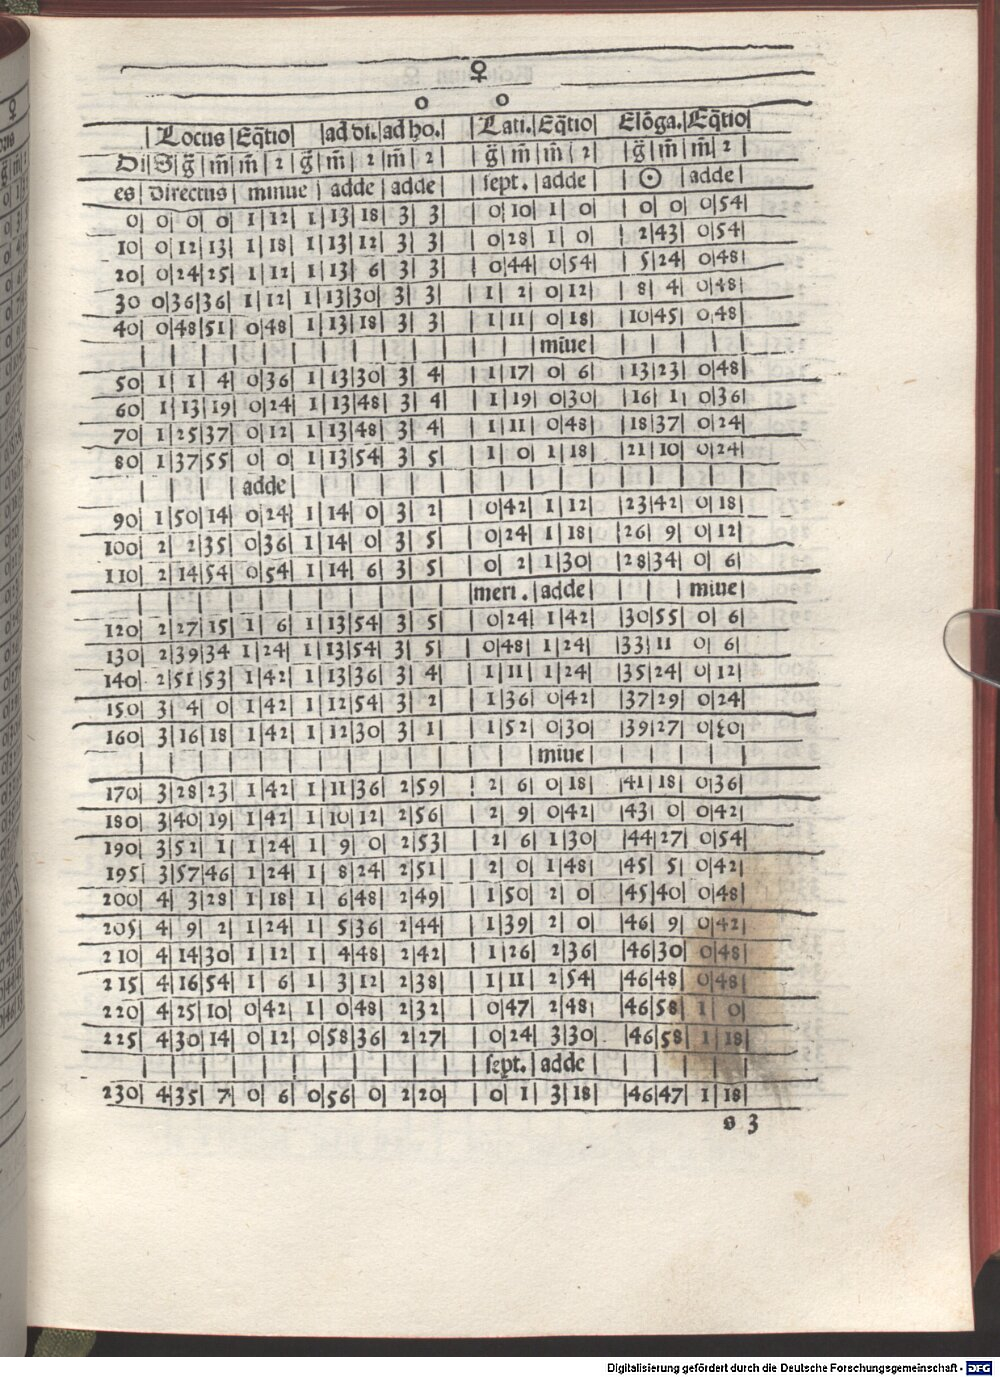 ♀
0 0
Locus Eq̃tio ad di. ad ho. Lati. Eq̃tio Elõga. Eq̃tio
Di S g̃ m̃ m̃ 2 g̃ m̃ 2 m̃ 2 g̃ m̃ m̃ 2 g̃ m̃ m̃ 2
es directus minue adde adde sept. adde ☉ adde
0 0 0 0 1 12 1 13 18 3 3 0 10 1 0 0 0 0 54
10 0 12 13 1 18 1 13 12 3 3 0 28 1 0 2 43 0 54
20 0 24 25 1 12 1 13 6 3 3 0 44 0 54 5 24 0 48
30 0 36 36 1 12 1 13 30 3 3 1 2 0 12 8 4 0 48
40 0 48 51 0 48 1 13 18 3 3 1 11 0 18 10 45 0 48
miue
50 1 1 4 0 36 1 13 30 3 4 1 17 0 6 13 23 0 48
60 1 13 19 0 24 1 13 48 3 4 1 19 0 30 16 1 0 36
70 1 25 37 0 12 1 13 48 3 4 1 11 0 48 18 37 0 24
80 1 37 55 0 0 1 13 54 3 5 1 0 1 18 21 10 0 24
adde
90 1 50 14 0 24 1 14 0 3 2 0 42 1 12 23 42 0 18
100 2 2 35 0 36 1 14 0 3 5 0 24 1 18 26 9 0 12
110 2 14 54 0 54 1 14 6 3 5 0 2 1 30 28 34 0 6
meri. adde miue
120 2 27 15 1 6 1 13 54 3 5 0 24 1 42 30 55 0 6
130 2 39 34 1 24 1 13 54 3 5 0 48 1 24 33 11 0 6
140 2 51 53 1 42 1 13 36 3 4 1 11 1 24 35 24 0 12
150 3 4 0 1 42 1 12 54 3 2 1 36 0 42 37 29 0 24
160 3 16 18 1 42 1 12 30 3 1 1 52 0 30 39 27 0
miue
170 3 28 23 1 42 1 11 36 2 59 2 6 0 18 41 18 0 36
180 3 40 19 1 42 1 10 12 2 56 2 9 0 42 43 0 0 42
190 3 52 1 1 24 1 9 0 2 53 2 6 1 30 44 27 0 54
195 3 57 46 1 24 1 8 24 2 51 2 0 1 48 45 5 0 42
200 4 3 28 1 18 1 6 48 2 49 1 50 2 0 45 40 0 48
205 4 9 2 1 24 1 5 36 2 44 1 39 2 0 46 9 0 42
210 4 14 30 1 12 1 4 48 2 42 1 26 2 36 46 30 0 48
215 4 16 54 1 6 1 3 12 2 38 1 11 2 54 46 48 0 48
220 4 25 10 0 42 1 0 48 2 32 0 47 2 48 46 58 1 0
225 4 30 14 0 12 0 58 36 2 27 0 24 3 30 46 58 1 18
sept. adde
230 4 35 7 0 6 0 56 0 2 20 0 1 3 18 46 47 1 18
3
Digitalisierung gefördert durch die Deutsche Forschungsgemeinschaft - DFG